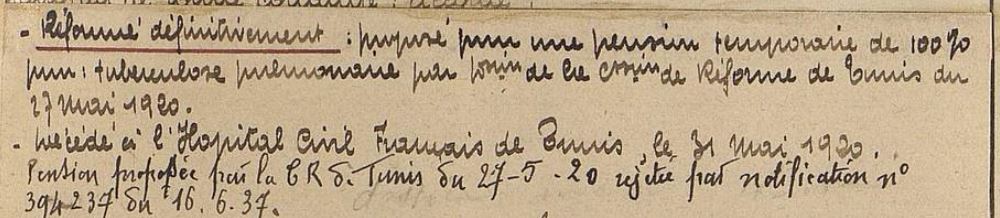 - Réformé définitivement : proposé pour une pension temporaire de 100 %
pour : tuberculose pulmonaire par de la Cossion de Réforme de Tunis du
27 Mai 1920.
- Décédé à l'Hopital Civil Français de Tunis, le 31 Mai 1920.
Pension proposée par la C R de Tunis du 27-5-20 rejetée par notification n°
394237 du 16.6.37.